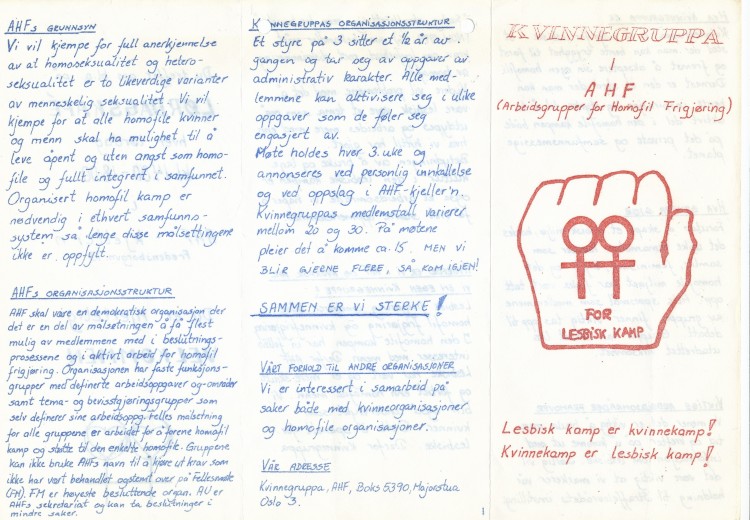 AHFs GRUNNSYN
Vi vil kjempe for full anerkjennelse
av at homoseksualitet og hetero-
seksualitet er to likeverdige varianter
av menneskelig seksualitet. Vi vil
kjempe for at alle homofile kvinner
og menn skal ha mulighet til å
leve åpent og uten angst som homo-
file og fullt integrert i samfunnet.
Organisert homofil kamp er
nødvendig i ethvert samfunns-
system så lenge disse målsettingene
ikke er oppfylt.
AHFs ORGANISASJONSSTRUKTUR
AHF skal være en demokratisk organisasjon der
det er en del av målsetningen å få flest
mulig av medlemmene med i beslutnings-
prosessene og i aktivt arbeid for homofil
frigjøring. Organisasjonen har faste funksjons-
grupper med definerte arbeidsoppgaver og-områder
samt tema- og bevisstgjøringsgrupper som
selv definerer sine arbeidsoppg. Felles målsetning
for alle gruppene er arbeidet for å føre homofil
kamp og støtte til den enkelte homofile. Gruppene
kan ikke bruke AHFs navn til å kjøre ut krav som
ikke har vært behandlet og stemt over på Fellesmøtet
(FM). FM er høyeste besluttende organ. AU er
AHFs sekretariat og kan ta beslutninger i
mindre saker.
KVINNEGRUPPAS ORGANISASJONSSTRUKTUR
Et styre på 3 sitter et 1/2 år av
gangen og tar seg av oppgaver av
administrativ karakter. Alle med-
lemmene kan aktivisere seg i ulike
oppgaver som de føler seg
engasjert av.
Møte holdes hver 3. uke og
annonseres ved personlig innkallelse
og ved oppslag i AHF-kjeller'n.
Kvinnegruppas medlemstall varierer
mellom 20 og 30. På møtene
pleier det å komme ca. 15. MEN VI
BLIR GJERNE FLERE, SÅ KOM IGJEN!
SAMMEN ER VI STERKE!
VÅRT FORHOLD TIL ANDRE ORGANISASJONER
Vi er interessert i samarbeid på
saker både med kvinneorganisasjoner
og homofile organisasjoner.
VÅR ADRESSE
Kvinnegruppa, AHF, Boks 5390, Majorstua
Oslo 3.
KVINNEGRUPPA
I
AHF
(Arbeidsgrupper for Homofil Frigjøring)
FOR
LESBISK KAMP
Lesbisk kamp er kvinnekamp!
Kvinnekamp er lesbisk kamp!